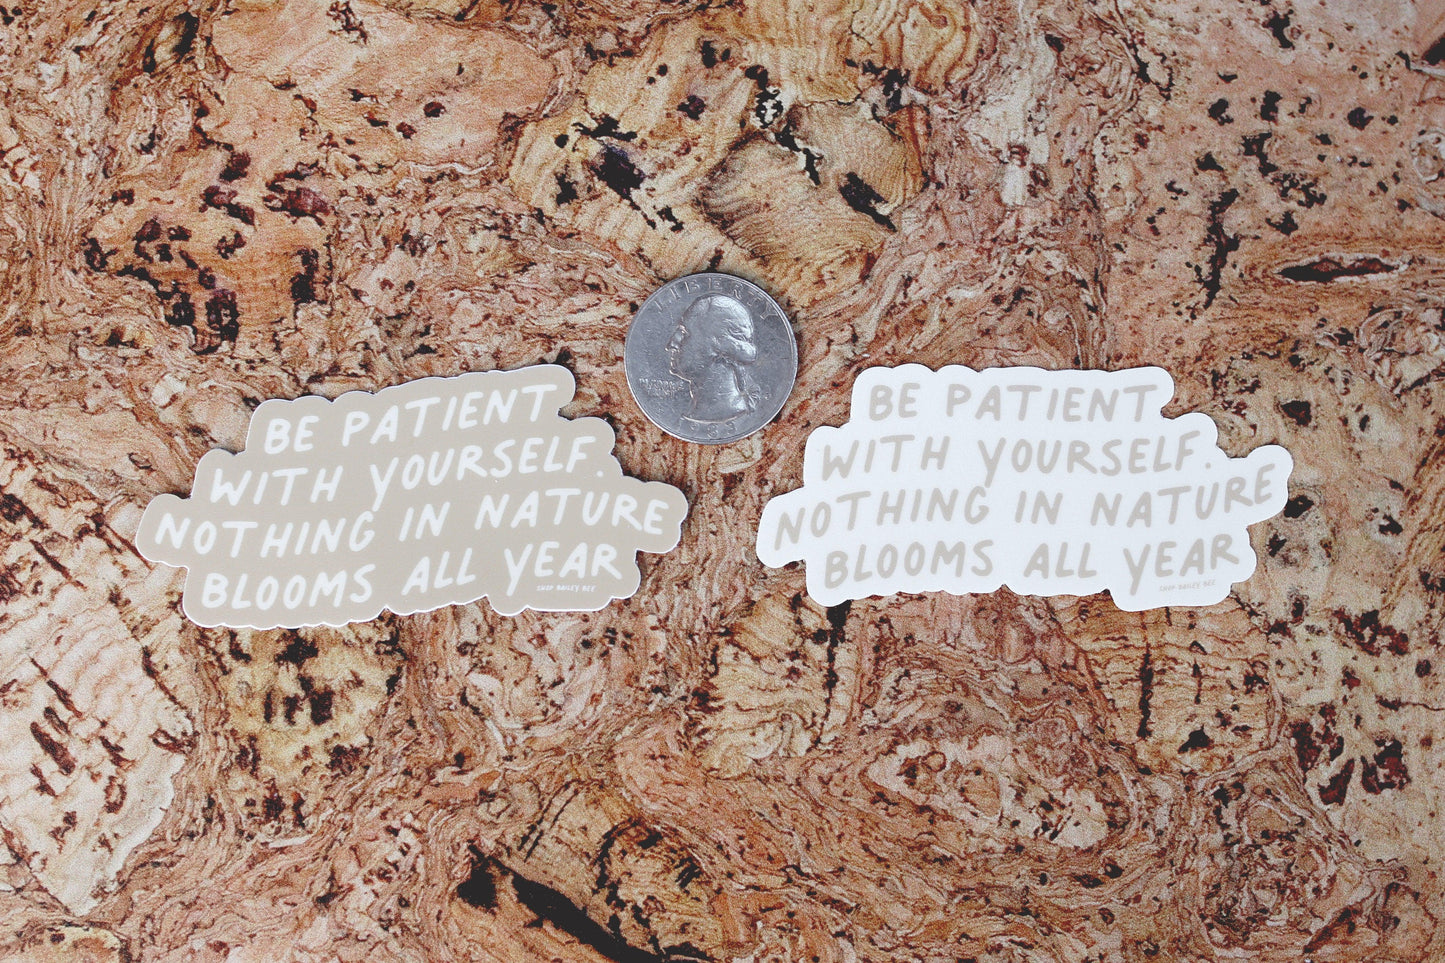 LIBERTY
BE PATIENT
WITH YOURSELF.
NOTHING IN NATURE
BLOOMS ALL YEAR
SHOP BAILEY BEE
BE PATIENT
WITH YOURSELF.
NOTHING IN NATURE
BLOOMS ALL YEAR
SHOP BAILEY BEE